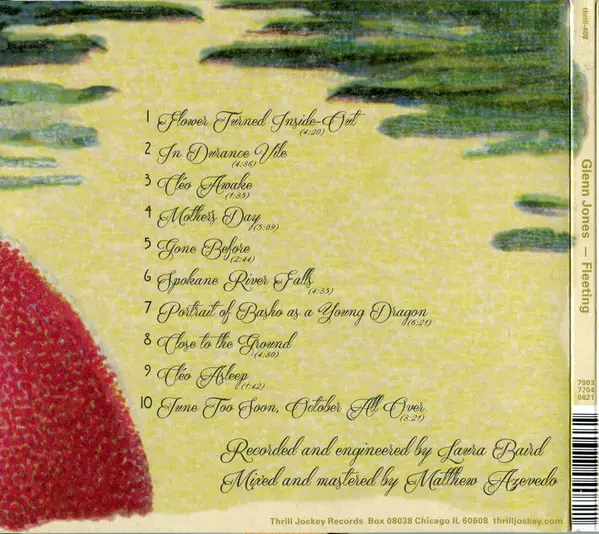 1 Flower Turned Inside-Out
(4:20)
2 In Durance Vile
(4:36)
3 Cléo Awake
(1:35)
4 Mother's Day
(5:09)
5 Gone Before
(2:44)
6 Spokane River Falls
(4:35)
7 Portrait of Basho as a Young Dragon
(6:21)
8 Close to the Ground
(4:30)
9 Cléo Asleep
(1:42)
10 June Too Soon, October All Over
(3:21)
Recorded and engineered by Laura Baird
Mixed and mastered by Matthew Azevedo
Thrill Jockey Records Box 08038 Chicago IL 60608 thrilljockey.com
thrill-408
Glenn Jones – Fleeting
7903
7704
0821